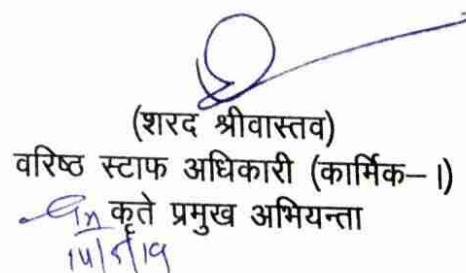 (शरद श्रीवास्तव)
वरिष्ठ स्टाफ अधिकारी (कार्मिक–I)
कृते प्रमुख अभियन्ता
14/5/19